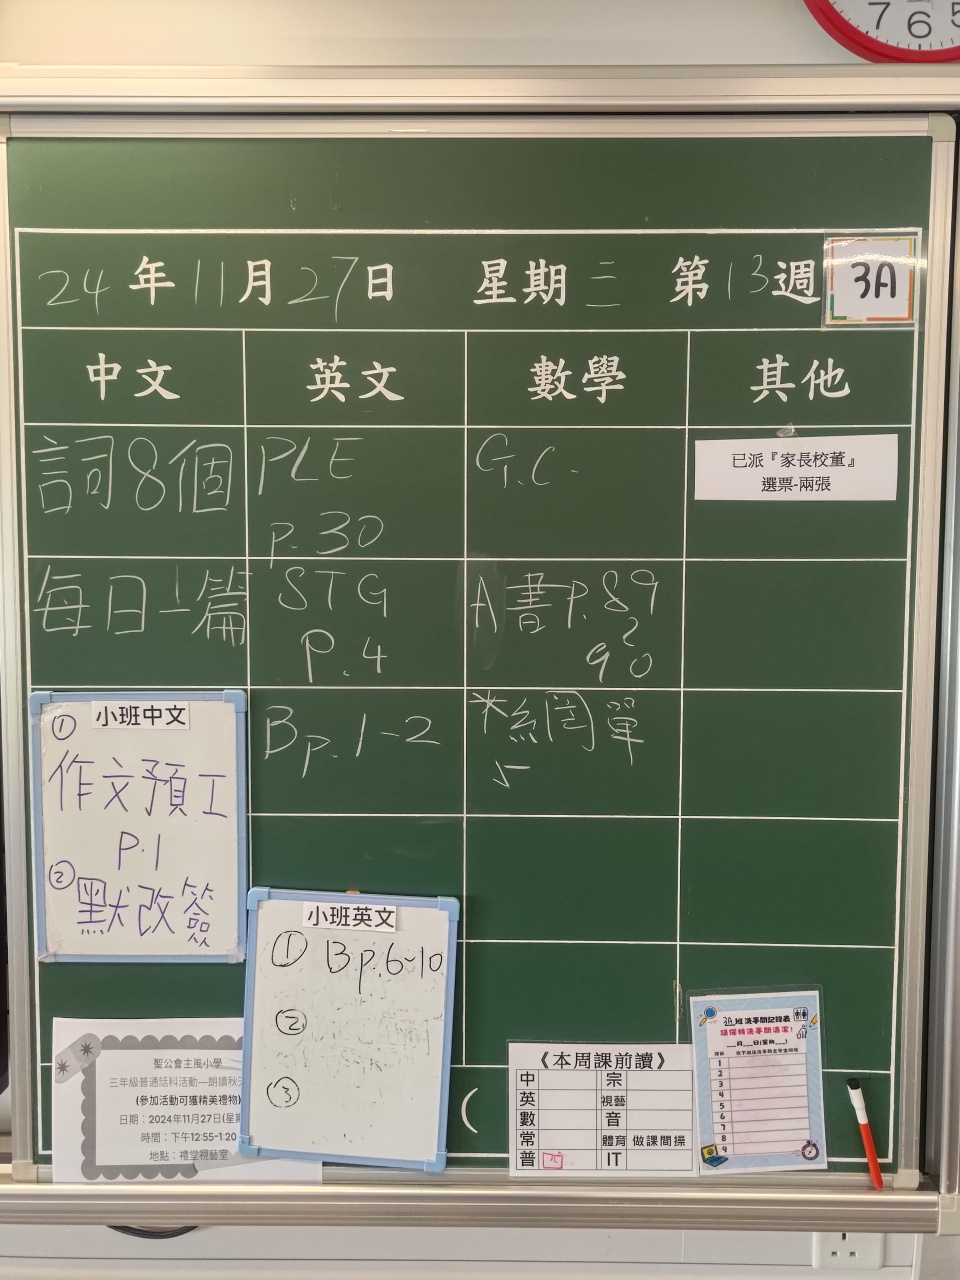 7 6 5
24年11月27日 星期三 第13週 3A
中文 英文 數學 其他
詞8個
每日一篇
小班中文
① 作文預工
P.1
② 默改簽
PLE
p.30
STG
P.4
Bp.1-2
小班英文
① B p.6-10
②
③
G.C.
A書P.89
90
*網單
5
已派『家長校董』
選票-兩張
聖公會主風小學
三年級普通話科活動—朗讀秋
(參加活動可獲精美禮物)
日期：2024年11月27日(星期
時間：下午12:55-1:20
地點：禮堂視藝室
《本周課前讀》
中 宗
英 視藝
數 音
常 體育 做課間操
普 IT
3A班洗手間記錄表
請保持洗手間清潔！
___月___日(星期___)
1
2
3
4
5
6
7
8
9